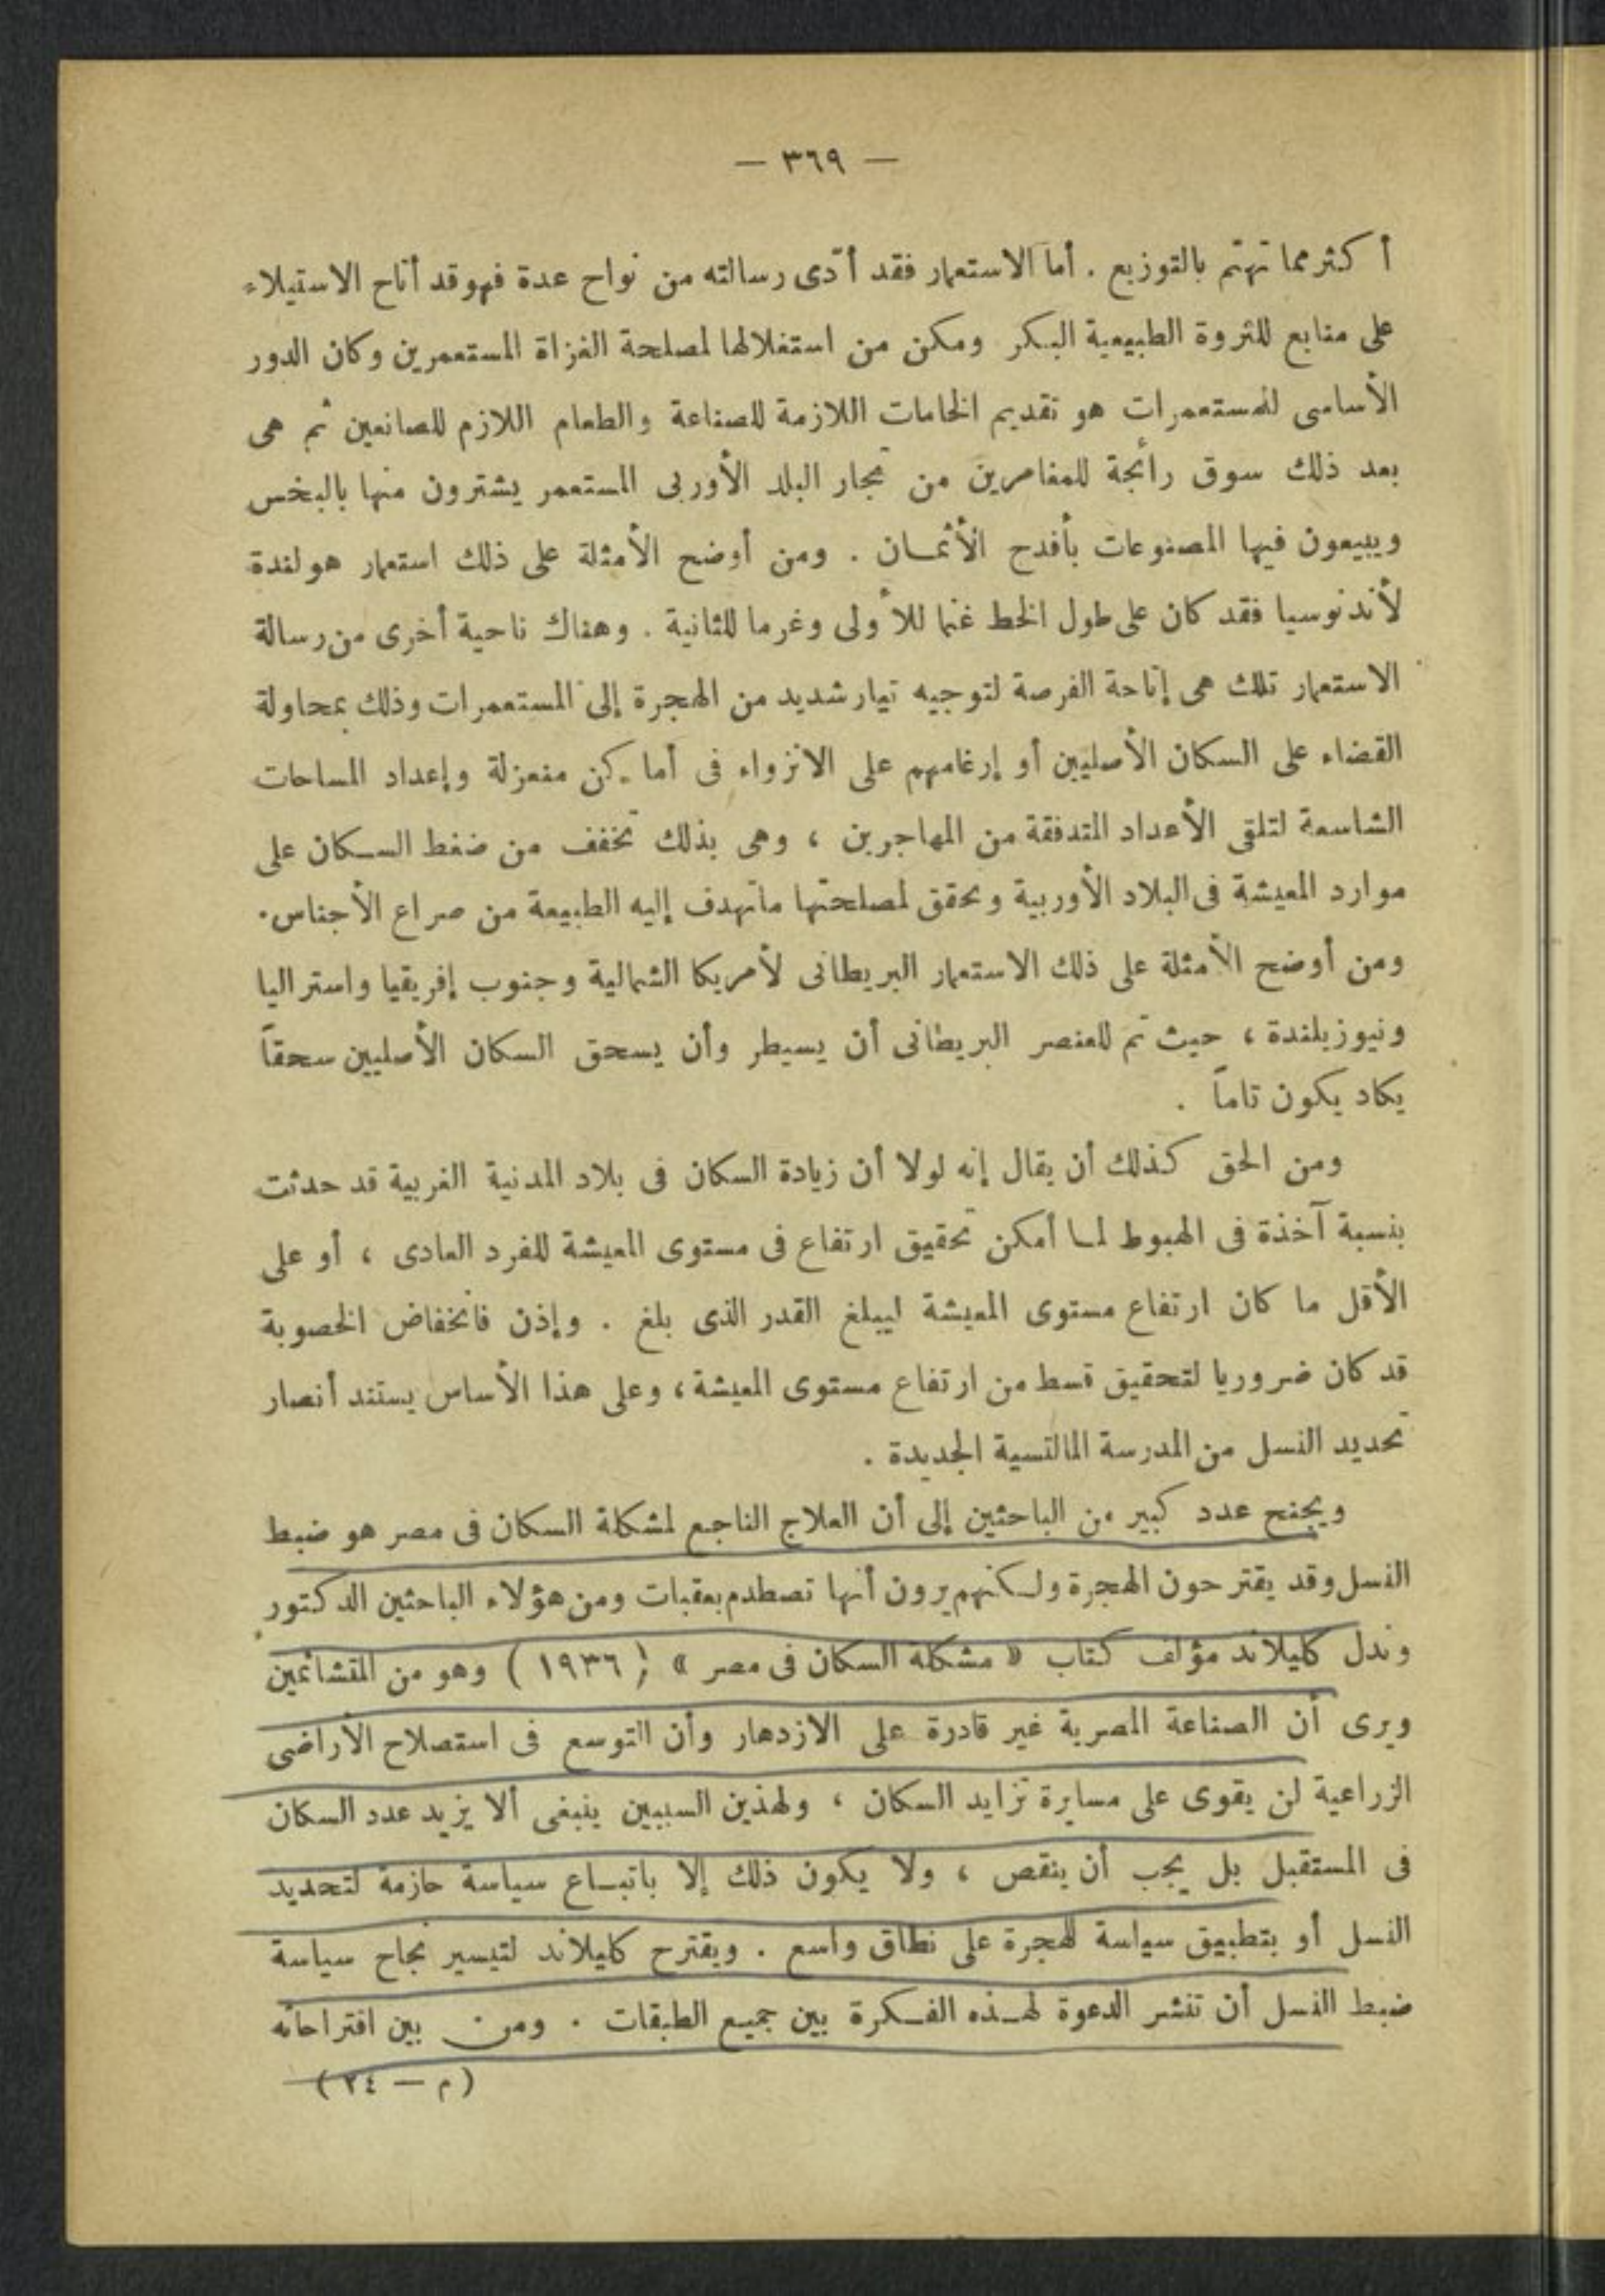 — ٣٦٩ —
أكثر مما تهتم بالتوزيع . أما الاستعمار فقد أدّى رسالته من نواح عدة فهو قد أتاح الاستيلاء
على منابع للثروة الطبيعية البكر ومكن من استغلالها لمصلحة الغزاة المستعمرين وكان الدور
الأساسى للمستعمرات هو تقديم الخامات اللازمة للصناعة والطعام اللازم للصانعين ثم هى
بعد ذلك سوق رائجة للمغامرين من تجار البلد الأوربى المستعمر يشترون منها بالبخس
ويبيعون فيها المصنوعات بأفدح الأثمان . ومن أوضح الأمثلة على ذلك استعمار هولندة
لأندنوسيا فقد كان على طول الخط غنما للأولى وغرما للثانية . وهناك ناحية أخرى من رسالة
الاستعمار تلك هى إتاحة الفرصة لتوجيه تيار شديد من الهجرة إلى المستعمرات وذلك بمحاولة
القضاء على السكان الأصليين أو إرغامهم على الانزواء فى أماكن منعزلة وإعداد المساحات
الشاسعة لتلقى الأعداد المتدفقة من المهاجرين ، وهى بذلك تخفف من ضغط السكان على
موارد المعيشة فى البلاد الأوربية وتحقق لمصلحتها ماتهدف إليه الطبيعة من صراع الأجناس .
ومن أوضح الأمثلة على ذلك الاستعمار البريطانى لأمريكا الشمالية وجنوب إفريقيا واستراليا
ونيوزيلندة ، حيث تم للعنصر البريطانى أن يسيطر وأن يسحق السكان الأصليين سحقاً
يكاد يكون تاماً .
ومن الحق كذلك أن يقال إنه لولا أن زيادة السكان فى بلاد المدنية الغربية قد حدثت
بنسبة آخذة فى الهبوط لما أمكن تحقيق ارتفاع فى مستوى المعيشة للفرد العادى ، أو على
الأقل ما كان ارتفاع مستوى المعيشة ليبلغ القدر الذى بلغ . وإذن فانخفاض الخصوبة
قد كان ضروريا لتحقيق قسط من ارتفاع مستوى المعيشة ، وعلى هذا الأساس يستند أنصار
تحديد النسل من المدرسة المالتسية الجديدة .
ويجنح عدد كبير من الباحثين إلى أن العلاج الناجع لمشكلة السكان فى مصر هو ضبط
النسل وقد يقترحون الهجرة ولكنهم يرون أنها تصطدم بعقبات ومن هؤلاء الباحثين الدكتور
وندل كليلاند مؤلف كتاب « مشكلة السكان فى مصر » ( ١٩٣٦ ) وهو من المتشائمين
ويرى أن الصناعة المصرية غير قادرة على الازدهار وأن التوسع فى استصلاح الأراضى
الزراعية لن يقوى على مسايرة تزايد السكان ، ولهذين السببين ينبغى ألا يزيد عدد السكان
فى المستقبل بل يجب أن ينقص ، ولا يكون ذلك إلا باتباع سياسة حازمة لتحديد
النسل أو بتطبيق سياسة للهجرة على نطاق واسع . ويقترح كليلاند لتيسير نجاح سياسة
ضبط النسل أن تنشر الدعوة لهذه الفكرة بين جميع الطبقات . ومن بين اقتراحاته
( م — ٢٤ )